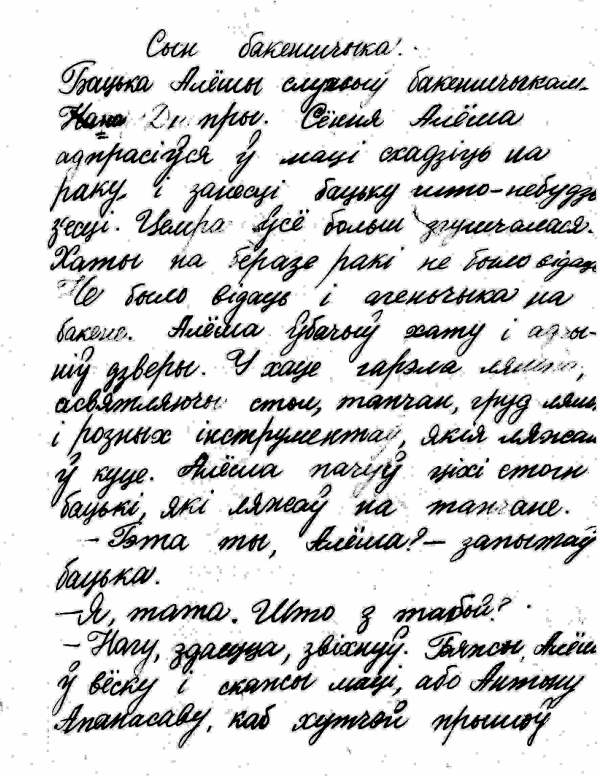 Сын бакеншчыка.
Бацька Алёшы служыў бакеншчыкам
Дняпры. Сёння Алёша
адпрасіўся ў маці схадзіць на
раку і занесці бацьку што-небудзь
з'есці. Цемра ўсё больш згушчалася.
Хаты на беразе ракі не было відаць
Не было відаць і агеньчыка на
бакене. Алёша ўбачыў хату і адчы-
ніў дзверы. У хаце гарэла лямпа,
асвятляючы стол, тапчан, груд лямп
і розных інструментаў, якія ляжалі
ў куце. Алёша пачуў ціхі стогн
бацькі, які ляжаў на тапчане.
- Гэта ты, Алёша? - запытаў
бацька.
- Я, тата. Што з табой?
- Нагу, здаецца, звіхнуў. Бяжы, Алёша
ў вёску і скажы маці, або Антону
Апанасаву, каб хутчэй прышоў